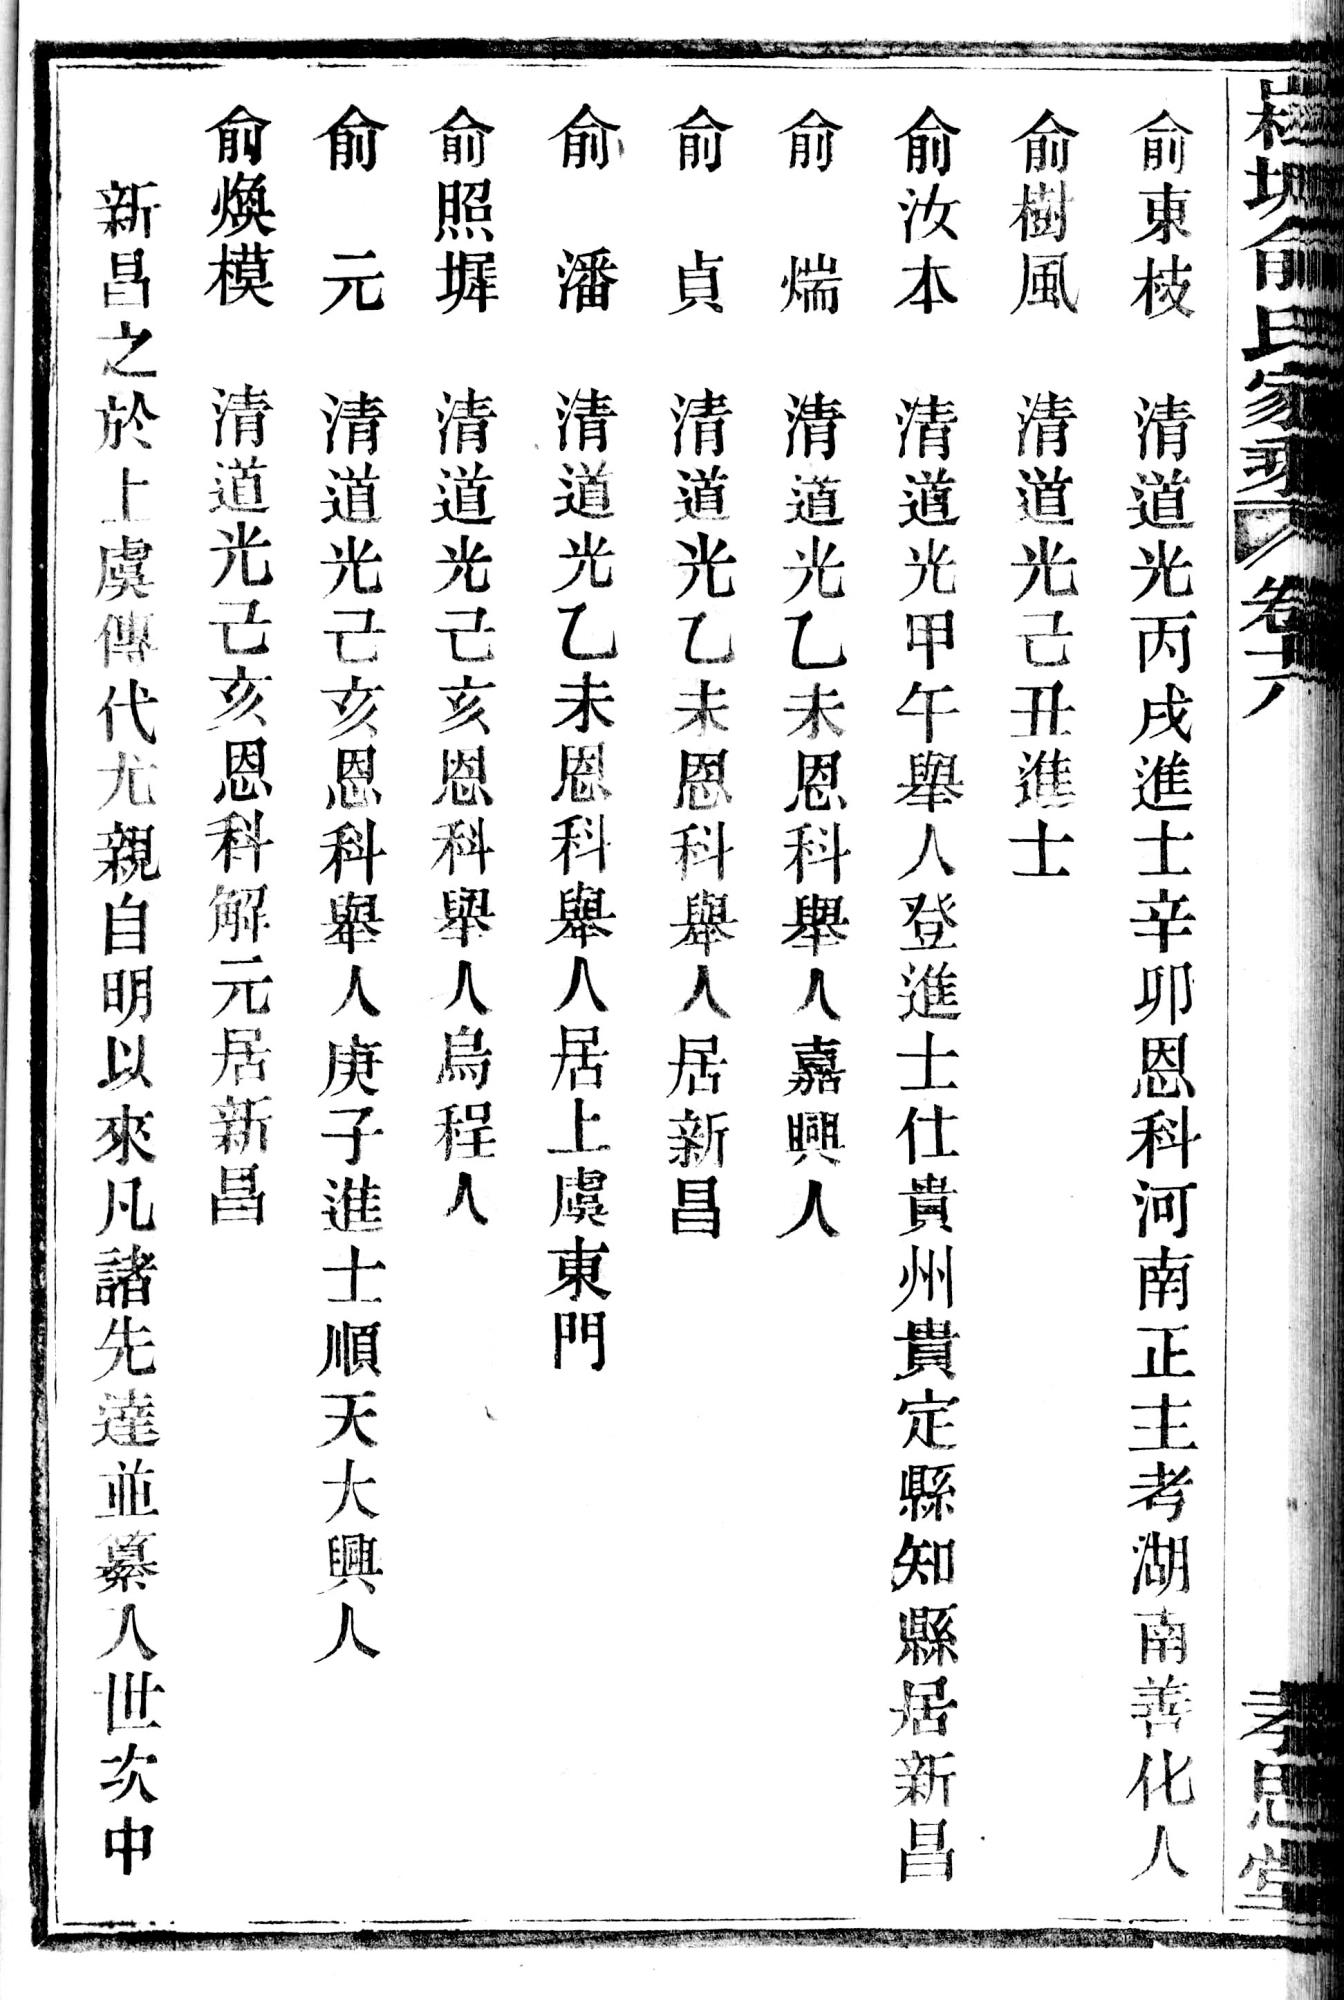 俞氏家乘 卷十八 孝思堂
俞東枝 清道光丙戌進士辛卯恩科河南正主考湖南善化人
俞樹風 清道光己丑進士
俞汝本 清道光甲午舉人登進士仕貴州貴定縣知縣居新昌
俞 煓 清道光乙未恩科舉人嘉興人
俞 貞 清道光乙未恩科舉人居新昌
俞 潘 清道光乙未恩科舉人居上虞東門
俞照墀 清道光己亥恩科舉人烏程人
俞 元 清道光己亥恩科舉人庚子進士順天大興人
俞煥模 清道光己亥恩科解元居新昌
新昌之於上虞傳代尤親自明以來凡諸先達並纂入世次中